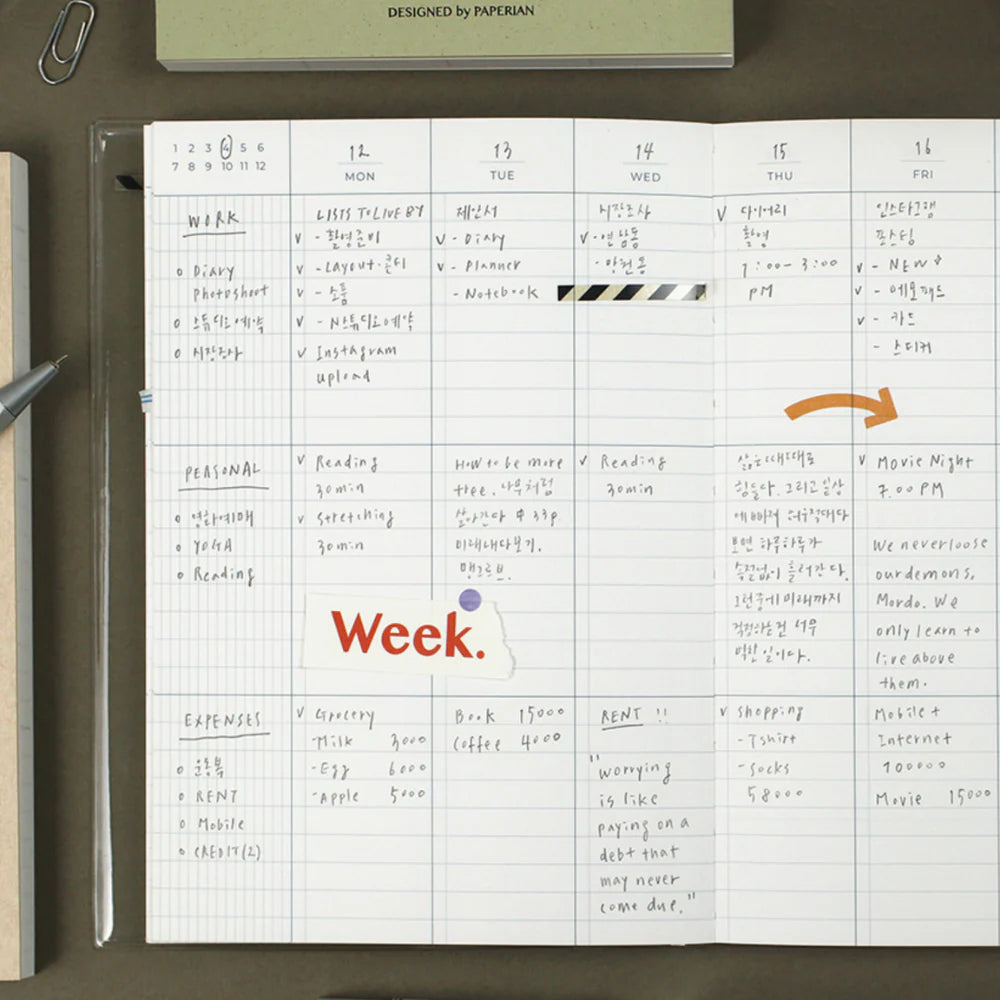 DESIGNED by PAPERIAN
1 2 3 4 5 6
7 8 9 10 11 12
12
MON
13
TUE
14
WED
15
THU
16
FRI
WORK
o Diary
Photoshoot
o 스튜디오예약
o 시장조사
LISTS TO LIVE BY
v - 촬영준비
v - Layout·콘티
v - 소품
v - 스튜디오예약
v Instagram
upload
제안서
v - Diary
v - Planner
- Notebook
시장조사
v - 연남동
- 망원동
v 다이어리
촬영
1:00 - 3:00
PM
인스타그램
포스팅
v - NEW
v - 메모패드
v - 카드
- 스티커
PERSONAL
• 영화예매
• YOGA
• Reading
v Reading
30min
v Stretching
30min
How to be more
tree. 나무처럼
살아간다 P 33p
미래내다보기.
맹그로브.
v Reading
30min
삶은 때때로
힘들다. 그리고 일상
에 빠져 허우적대다
보면 하루하루가
속절없이 흘러간다.
그런 중에 미래까지
걱정하는 건 너무
벅찬 일이다.
v Movie Night
7.00 PM
We never loose
our demons,
Mordo. We
only learn to
live above
them.
Week.
EXPENSES
o 운동복
o RENT
o Mobile
o CREDIT(2)
v Grocery
- Milk 3000
- Egg 6000
- Apple 5000
Book 15000
Coffee 4000
RENT !!
"worrying
is like
paying on a
debt that
may never
come due."
v Shopping
- Tshirt
- Socks
58000
Mobile +
Internet
100000
Movie 15000